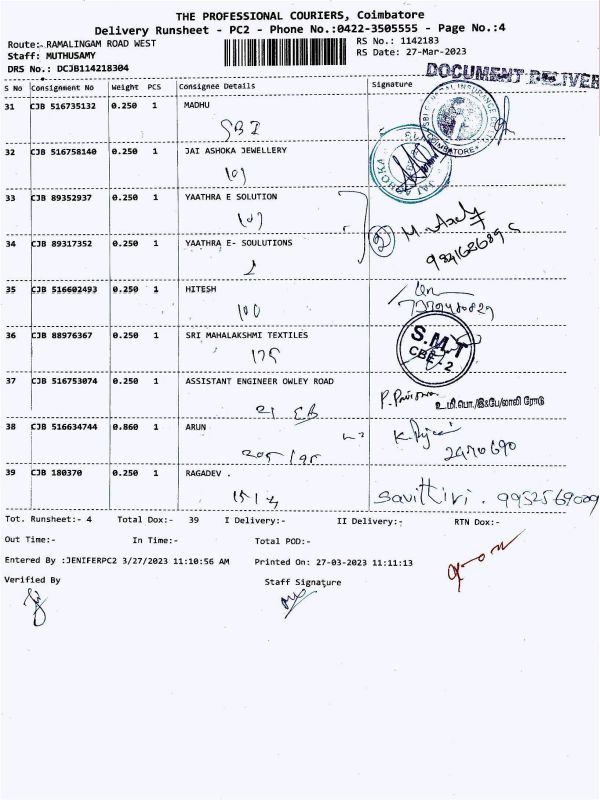 THE PROFESSIONAL COURIERS, Coimbatore
Delivery Runsheet - PC2 - Phone No.:0422-3505555 - Page No.:4
Route:- RAMALINGAM ROAD WEST
RS No.: 1142183
Staff: MUTHUSAMY
RS Date: 27-Mar-2023
DRS No.: DCJB114218304
DOCUMENT DELIVER
S No Consignment No Weight PCS Consignee Details Signature
31 CJB 516735132 0.250 1 MADHU
SBI
32 CJB 516758140 0.250 1 JAI ASHOKA JEWELLERY
101
33 CJB 89352937 0.250 1 YAATHRA E SOLUTION
101
34 CJB 89317352 0.250 1 YAATHRA E- SOULUTIONS
2
35 CJB 516602493 0.250 1 HITESH
100
36 CJB 88976367 0.250 1 SRI MAHALAKSHMI TEXTILES
175
S.M.T
CBE-2
37 CJB 516753074 0.250 1 ASSISTANT ENGINEER OWLEY ROAD
EB
38 CJB 516634744 0.860 1 ARUN
205/95
2470690
39 CJB 180370 0.250 1 RAGADEV .
Savithiri . 9952569009
Tot. Runsheet:- 4 Total Dox:- 39 I Delivery:- II Delivery:- RTN Dox:-
Out Time:- In Time:- Total POD:-
Entered By :JENIFERPC2 3/27/2023 11:10:56 AM Printed On: 27-03-2023 11:11:13
Verified By Staff Signature